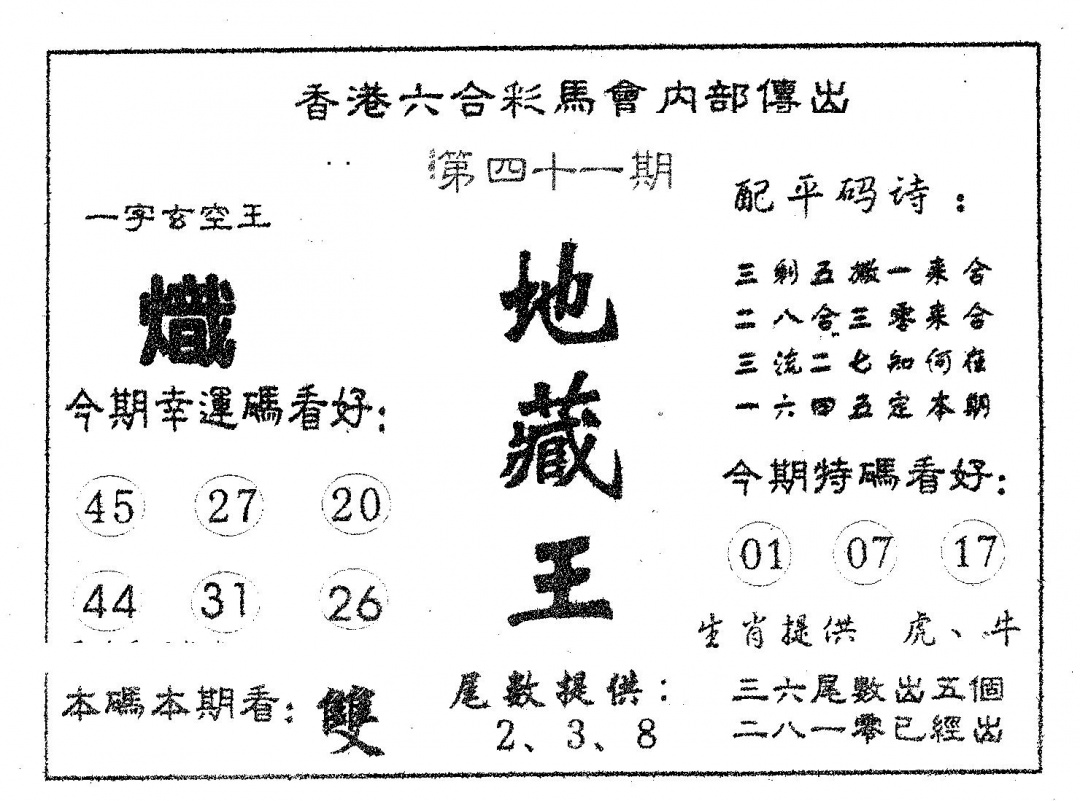 香港六合彩馬會内部傳出
第四十一期
一字玄空王
熾
今期幸運碼看好：
45 27 20
44 31 26
本碼本期看：雙
地藏王
尾數提供：
2、3、8
配平码诗：
三剩五搬一来合
二八合三零来合
三流二七知何在
一六四五定本期
今期特碼看好：
01 07 17
生肖提供 虎、牛
三六尾數出五個
二八一零已經出